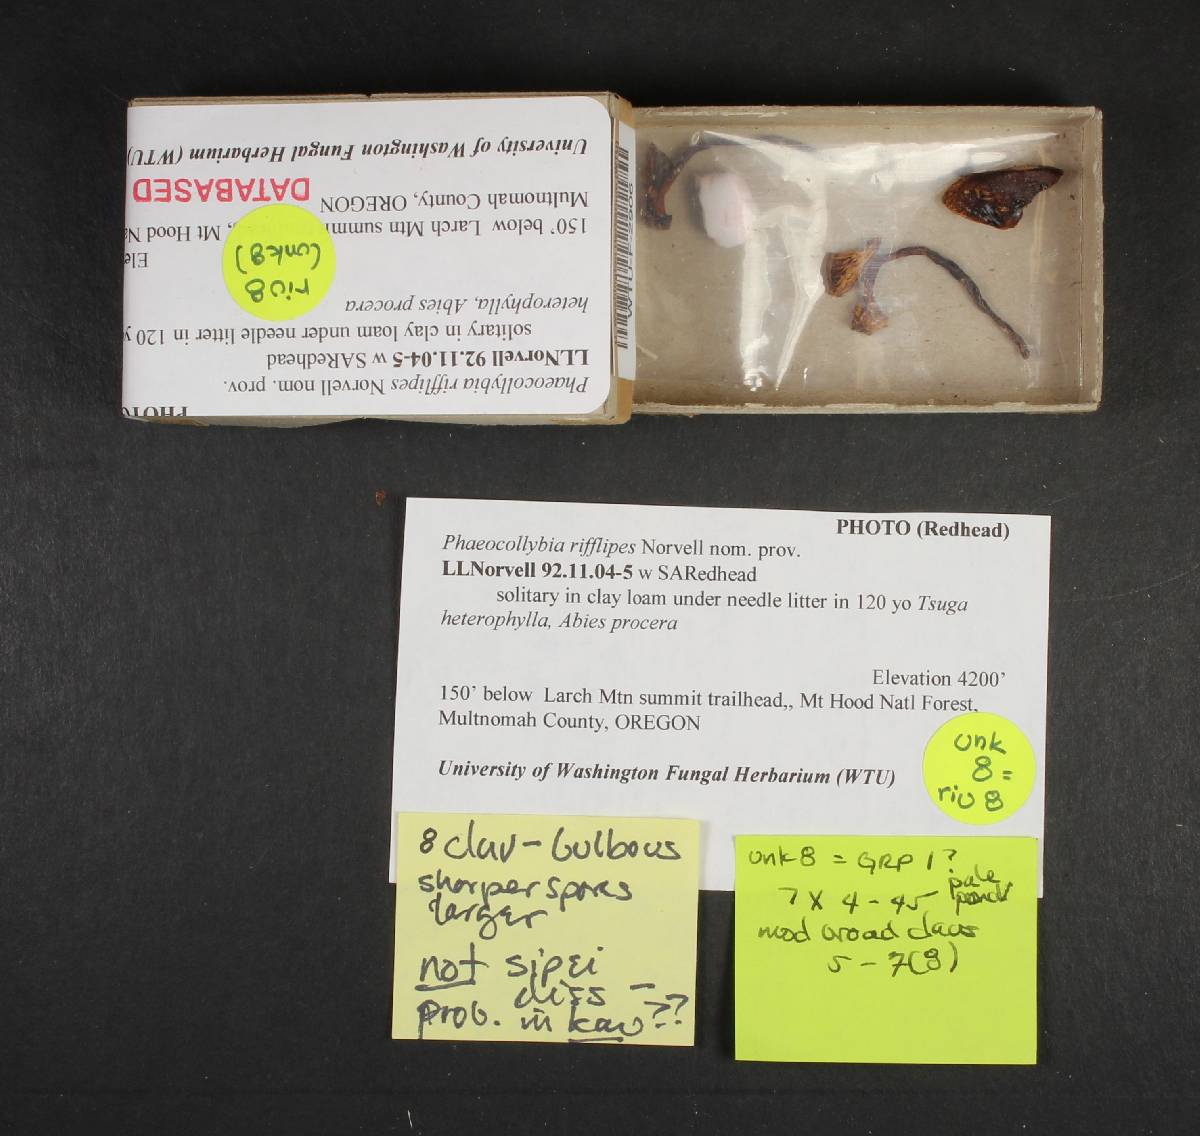 PHOTO
Phaeocollybia rifflipes Norvell nom. prov.
LLNorvell 92.11.04-5 w SARedhead
solitary in clay loam under needle litter in 120 y
heterophylla, Abies procera
Ele
150' below Larch Mtn summi , Mt Hood Na
Multnomah County, OREGON
DATABASED
University of Washington Fungal Herbarium (WTU)
riv8
(unk8)
PHOTO (Redhead)
Phaeocollybia rifflipes Norvell nom. prov.
LLNorvell 92.11.04-5 w SARedhead
solitary in clay loam under needle litter in 120 yo Tsuga
heterophylla, Abies procera
Elevation 4200'
150' below Larch Mtn summit trailhead,, Mt Hood Natl Forest,
Multnomah County, OREGON
University of Washington Fungal Herbarium (WTU)
unk
8 =
riv 8
8 clav - bulbous
sharper spores
larger
not sipei
diss -
prob. in kau??
unk 8 = GRP 1?
7 x 4 - 45 pale
mod broad clavs
5 - 7(8)